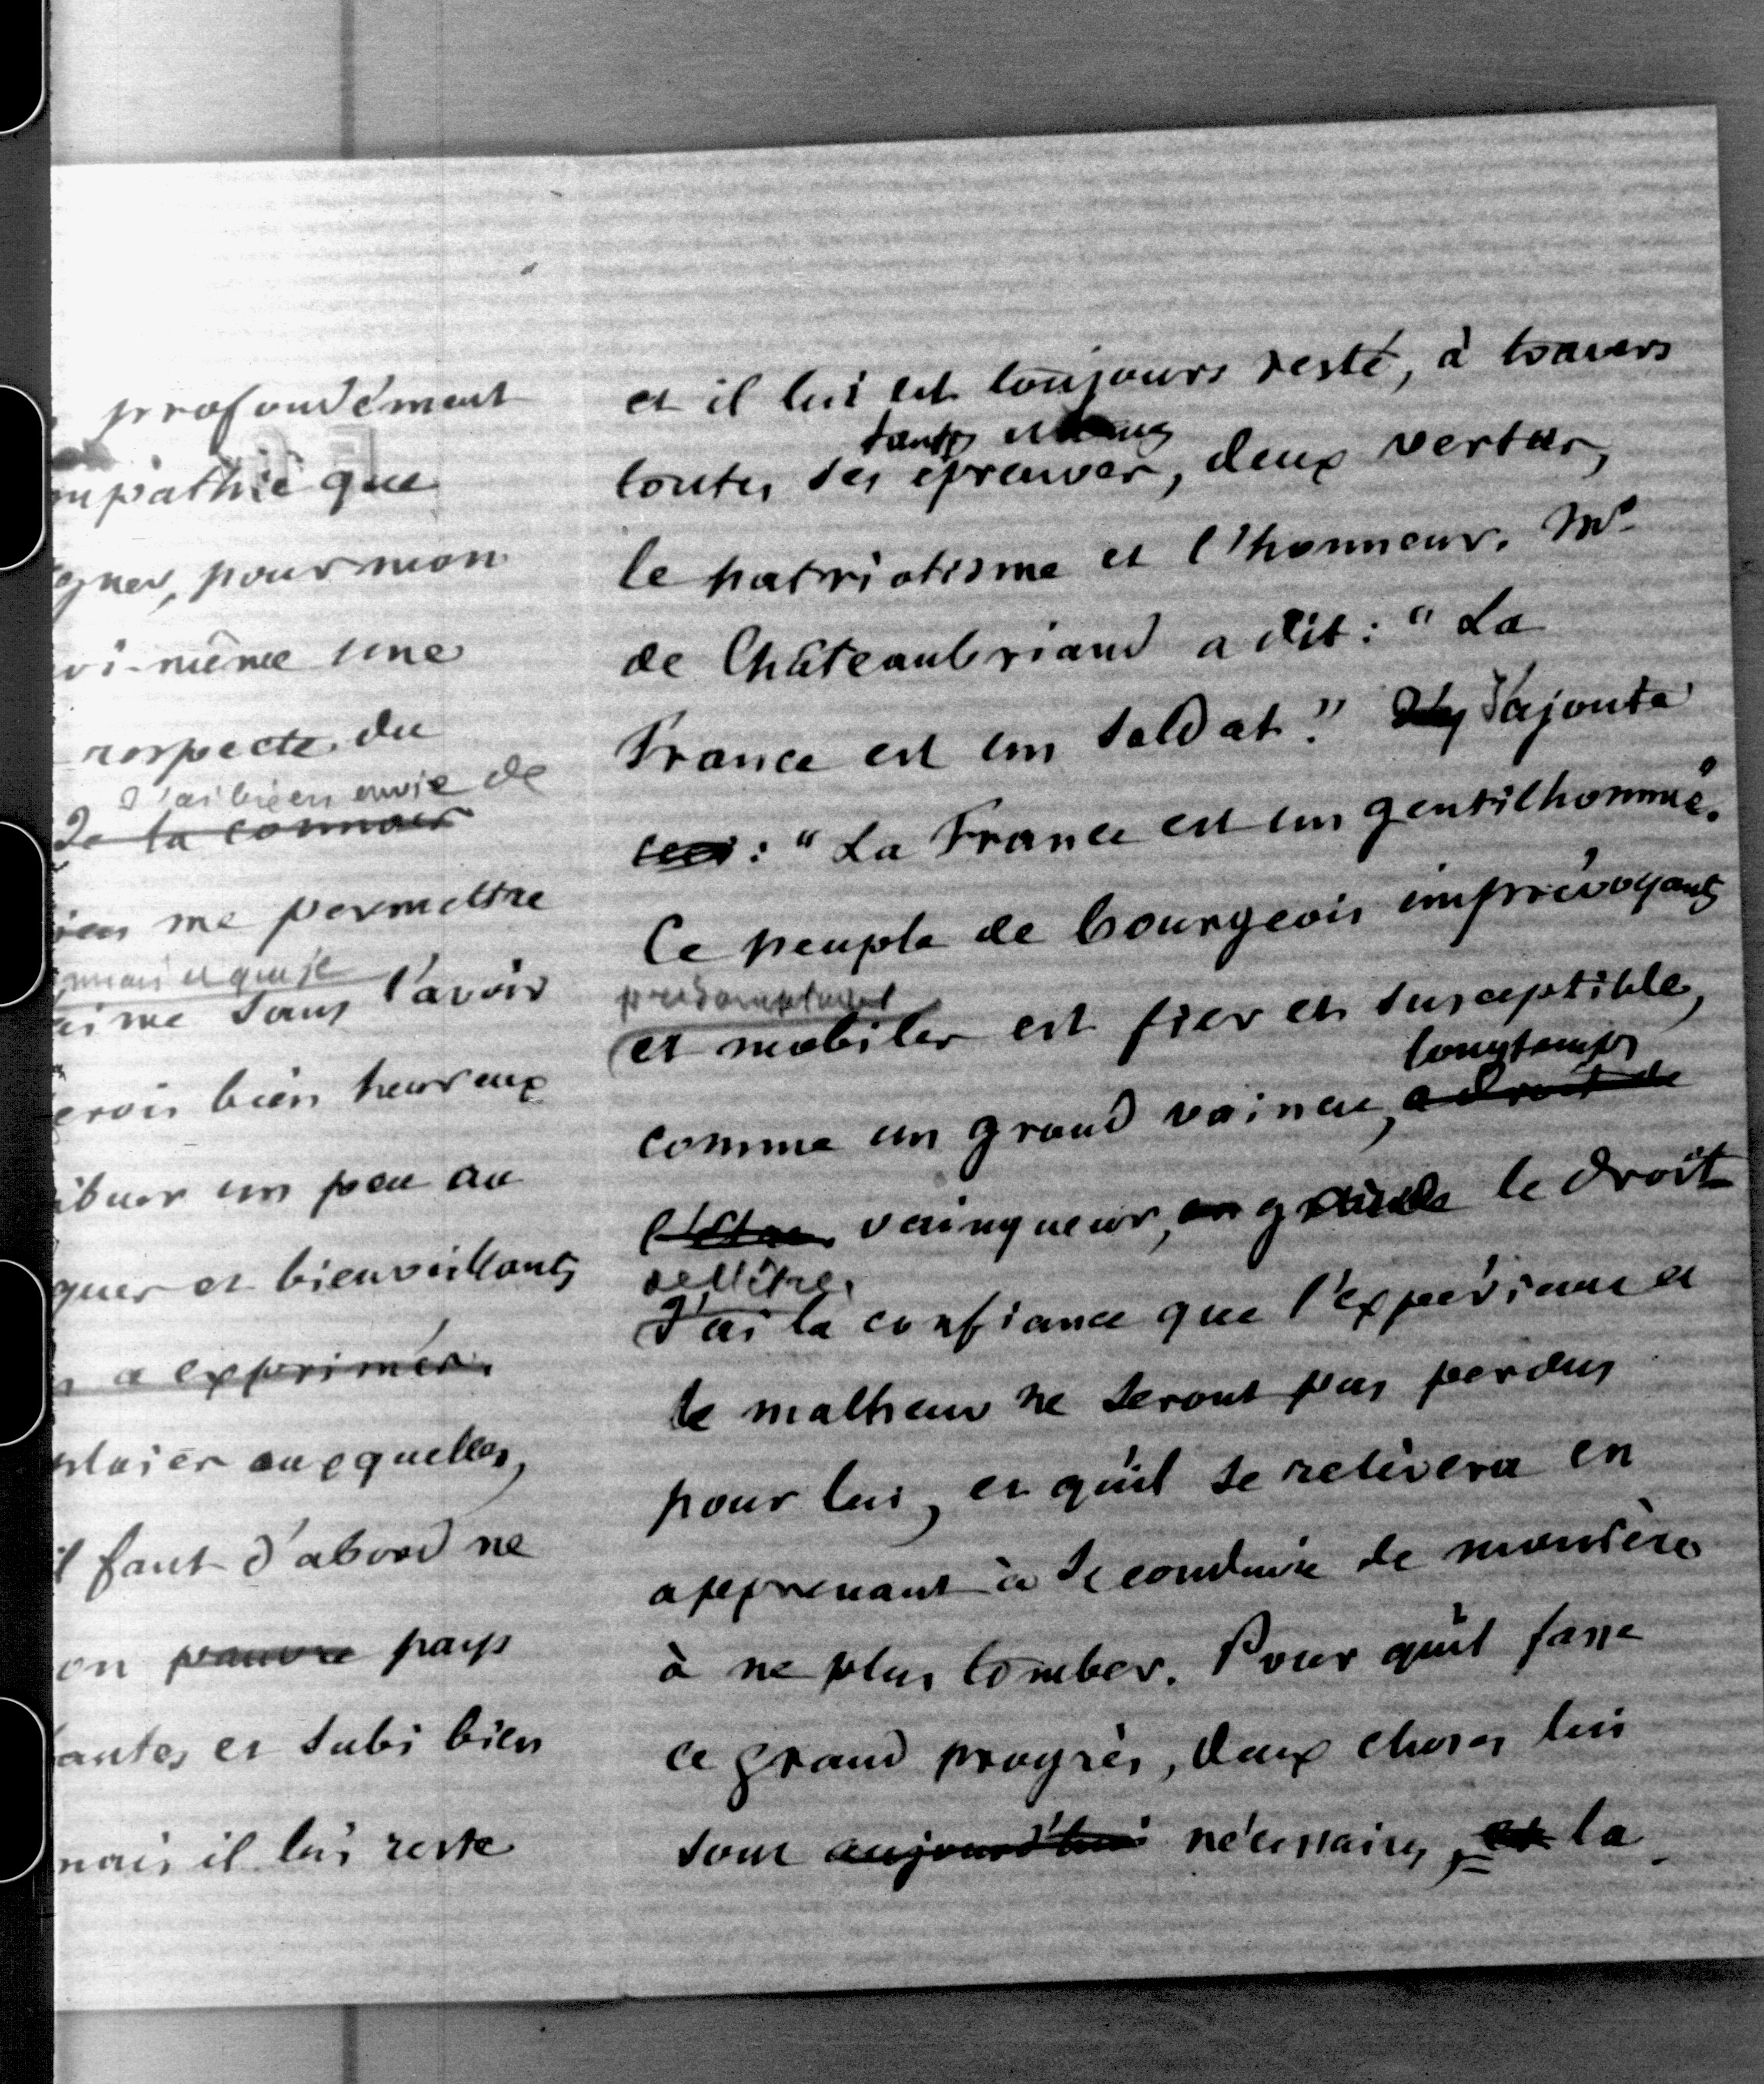 profondément
mpathie que
gner, pour mon
oi-même une
respecte du
J'ai bien envie de
de la connais
ien me permettre
nnais et que je
aime sans l'avoir
erois bien heureux
ibuer un peu au
ques et bienveillants
a exprimés.
plaies auxquelles,
il faut d'abord ne
on pauvre pays
antes et subi bien
mais il lui reste
et il lui est toujours resté, à travers
tants
toutes ses épreuves, deux vertus,
le patriotisme et l'honneur. Mr
de Châteaubriand a dit : "La
France est un soldat." J'ajoute
ceci : "La France est un gentilhomme".
Ce peuple de bourgeois imprévoyants
présomptueux
et mobiles est fier et susceptible,
longtemps
comme un grand vaincu, a droit de
l'être vainqueur, en garde le droit
de l'être.
J'ai la confiance que l'expérience et
le malheur ne seront pas perdus
pour lui, et qu'il se relèvera en
apprenant à se conduire de manière
à ne plus tomber. Pour qu'il fasse
ce grand progrès, deux choses lui
sont aujourd'hui nécessaires, et la